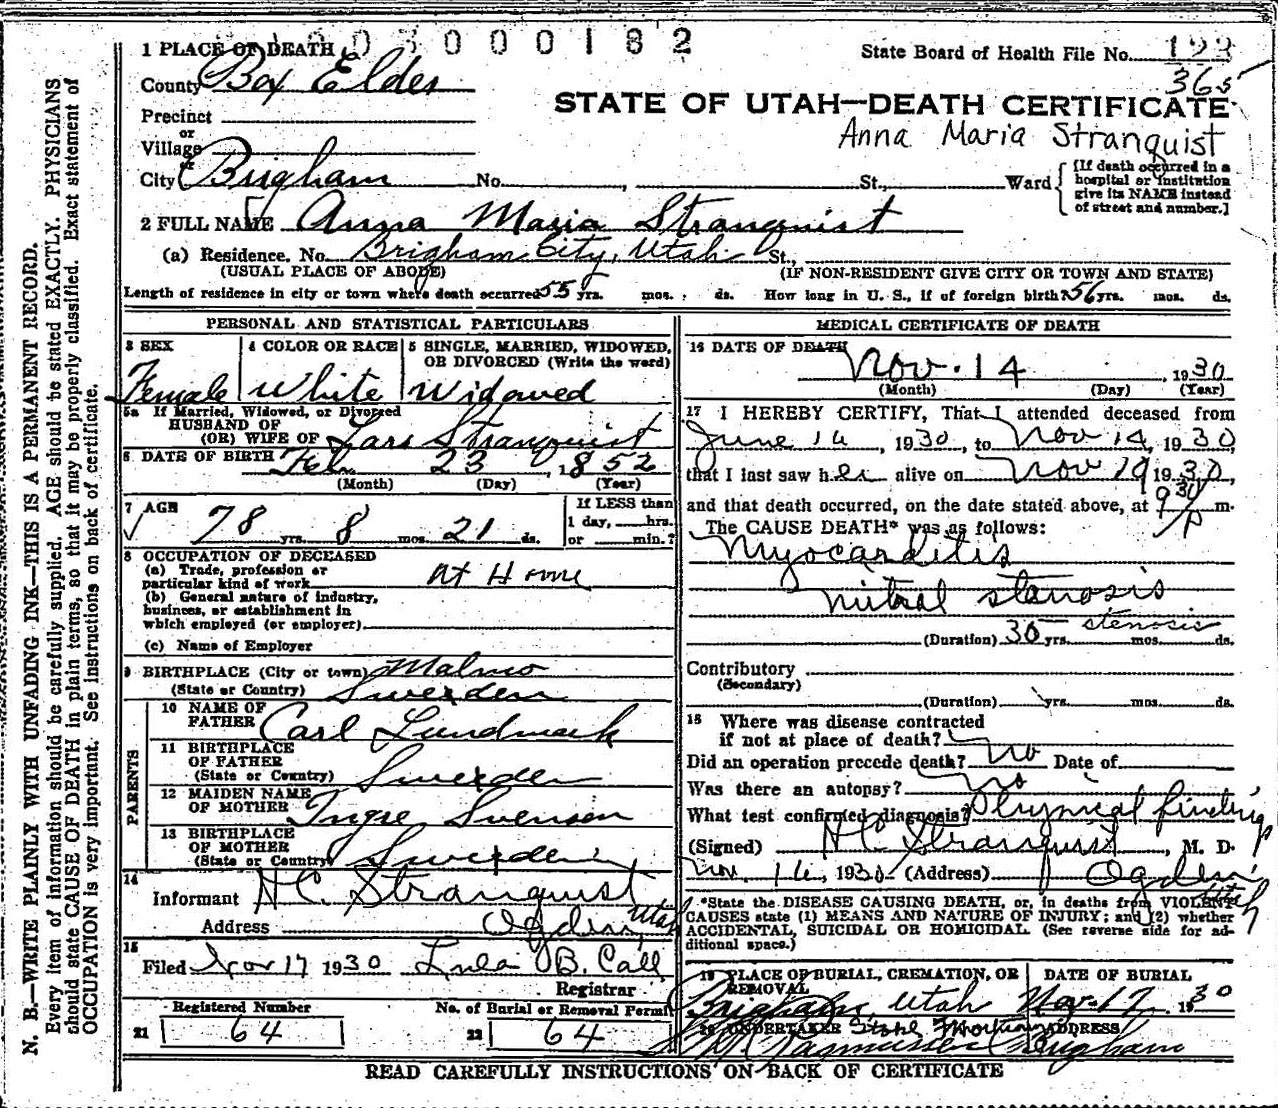 03000182
1 PLACE OF DEATH
State Board of Health File No. 193
365
County Box Elder
STATE OF UTAH—DEATH CERTIFICATE
Precinct
or
Village
Anna Maria Stranquist
or
City Brigham No. , St., Ward
[If death occurred in a hospital or institution give its NAME instead of street and number.]
2 FULL NAME Anna Maria Stranquist
(a) Residence. No. Brigham City, Utah St.,
(USUAL PLACE OF ABODE) (IF NON-RESIDENT GIVE CITY OR TOWN AND STATE)
Length of residence in city or town where death occurred 55 yrs. mos. ds. How long in U. S., if of foreign birth? 56 yrs. mos. ds.
N. B.—WRITE PLAINLY WITH UNFADING INK—THIS IS A PERMANENT RECORD.
Every item of information should be carefully supplied. AGE should be stated EXACTLY. PHYSICIANS
should state CAUSE OF DEATH in plain terms, so that it may be properly classified. Exact statement of
OCCUPATION is very important. See instructions on back of certificate.
PERSONAL AND STATISTICAL PARTICULARS
3 SEX
Female
4 COLOR OR RACE
White
5 SINGLE, MARRIED, WIDOWED,
OR DIVORCED (Write the word)
Widowed
5a If Married, Widowed, or Divorced
HUSBAND OF
(OR) WIFE OF Lars Stranquist
6 DATE OF BIRTH Feb 23, 1852
(Month) (Day) (Year)
7 AGE
78 yrs. 8 mos. 21 ds.
If LESS than
1 day, hrs.
or min.?
8 OCCUPATION OF DECEASED
(a) Trade, profession or
particular kind of work At Home
(b) General nature of industry,
business, or establishment in
which employed (or employer)
(c) Name of Employer
9 BIRTHPLACE (City or town) Malmo
(State or Country) Sweden
PARENTS
10 NAME OF
FATHER Carl Lundmark
11 BIRTHPLACE
OF FATHER
(State or Country) Sweden
12 MAIDEN NAME
OF MOTHER Ingre Svenson
13 BIRTHPLACE
OF MOTHER
(State or Country) Sweden
14
Informant H C. Stranquist
Address Ogden, Utah
15
Filed Nov 17 1930 Lula B. Call
Registrar
Registered Number
21 64
No. of Burial or Removal Permit
22 64
MEDICAL CERTIFICATE OF DEATH
16 DATE OF DEATH
Nov. 14, 1930
(Month) (Day) (Year)
17 I HEREBY CERTIFY, That I attended deceased from
June 14, 1930, to Nov 14, 1930,
that I last saw her alive on Nov 19 1930,
and that death occurred, on the date stated above, at 9 30/P m.
The CAUSE DEATH* was as follows:
Myocarditis
mitral stenosis
stenosis
(Duration) 30 yrs. mos. ds.
Contributory
(Secondary)
(Duration) yrs. mos. ds.
18 Where was disease contracted
if not at place of death?
Did an operation precede death? no Date of
Was there an autopsy? no
What test confirmed diagnosis? Physical findings
(Signed) H C. Stranquist, M. D.
Nov. 14, 1930 (Address) Ogden, Utah
*State the DISEASE CAUSING DEATH, or, in deaths from VIOLENT
CAUSES state (1) MEANS AND NATURE OF INJURY; and (2) whether
ACCIDENTAL, SUICIDAL OR HOMICIDAL. (See reverse side for ad-
ditional space.)
19 PLACE OF BURIAL, CREMATION, OR
REMOVAL
Brigham, Utah
DATE OF BURIAL
Nov. 17, 1930
20 UNDERTAKER
Rasmussen
ADDRESS
Brigham
READ CAREFULLY INSTRUCTIONS ON BACK OF CERTIFICATE